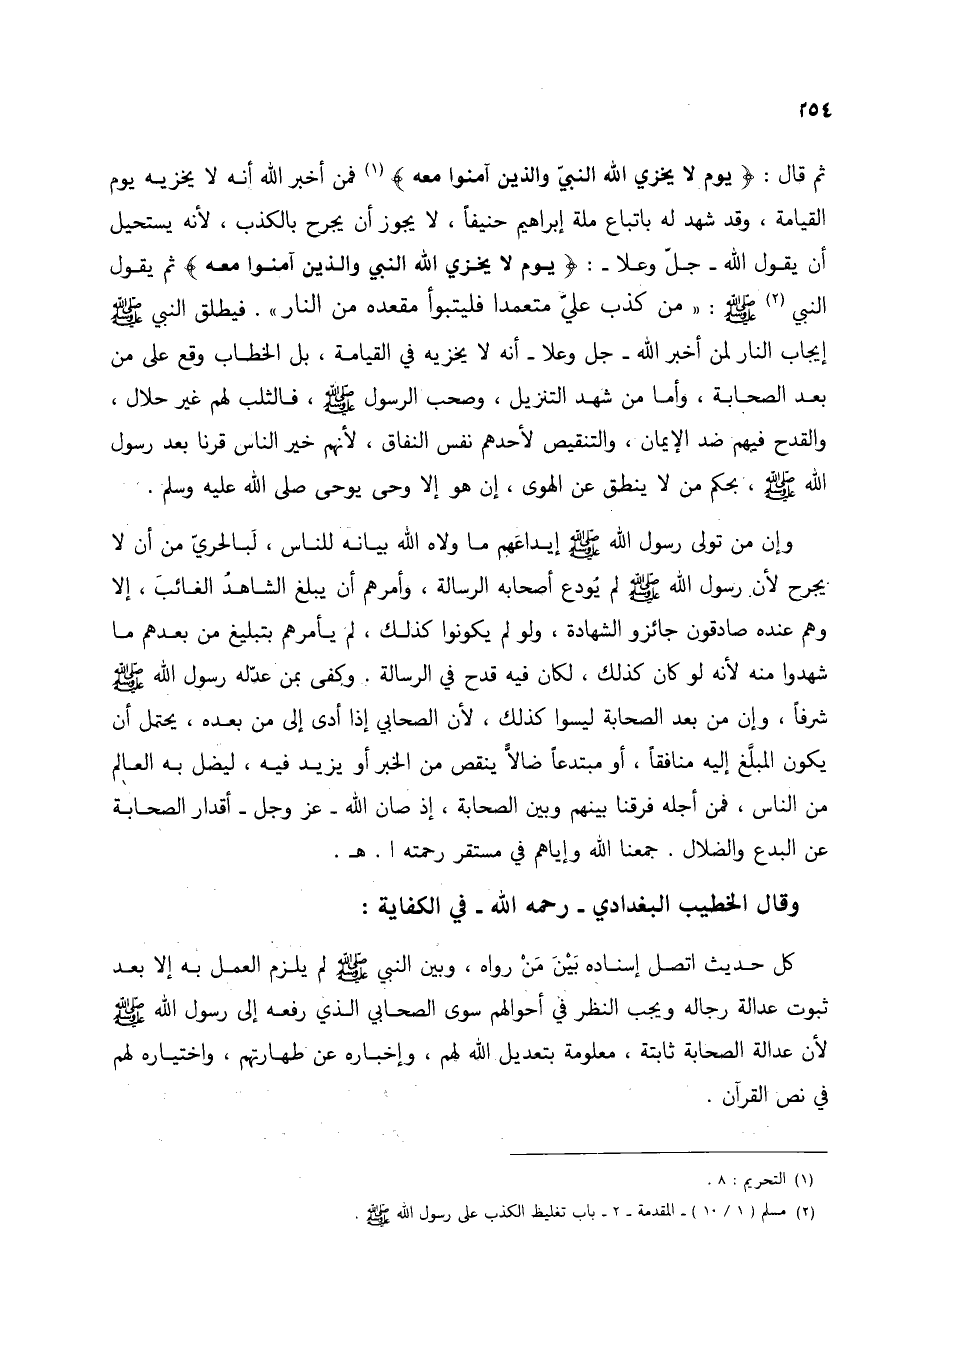 ٢٥٤
ثم قال : ﴿ يوم لا يخزي الله النبيّ والذين آمنوا معه ﴾ (١) فمن أخبر الله أنه لا يخزيه يوم
القيامة ، وقد شهد له باتباع ملة إبراهيم حنيفاً ، لا يجوز أن يجرح بالكذب ، لأنه يستحيل
أن يقول الله ـ جلّ وعلا ـ : ﴿ يوم لا يخزي الله النبي والذين آمنوا معه ﴾ ثم يقول
النبي (٢) ﷺ : « من كذب عليّ متعمدا فليتبوأ مقعده من النار» . فيطلق النبي ﷺ
إيجاب النار لمن أخبر الله ـ جل وعلا ـ أنه لا يخزيه في القيامة ، بل الخطاب وقع على من
بعد الصحابة ، وأما من شهد التنزيل ، وصحب الرسول ﷺ ، فالثلب لهم غير حلال ،
والقدح فيهم ضد الإيمان ، والتنقيص لأحدهم نفس النفاق ، لأنهم خير الناس قرنا بعد رسول
الله ﷺ ، بحكم من لا ينطق عن الهوى ، إن هو إلا وحى يوحى صلى الله عليه وسلم .
وإن من تولى رسول الله ﷺ إيداعَهم ما ولاه الله بيانه للناس ، لَبالحريّ من أن لا
يجرح لأن رسول الله ﷺ لم يُودع أصحابه الرسالة ، وأمرهم أن يبلغ الشاهدُ الغائبَ ، إلا
وهم عنده صادقون جائزو الشهادة ، ولو لم يكونوا كذلك ، لم يأمرهم بتبليغ من بعدهم ما
شهدوا منه لأنه لو كان كذلك ، لكان فيه قدح في الرسالة . وكفى بمن عدّله رسول الله ﷺ
شرفاً ، وإن من بعد الصحابة ليسوا كذلك ، لأن الصحابي إذا أدى إلى من بعده ، يحتمل أن
يكون المبلَّغ إليه منافقاً ، أو مبتدعاً ضالاًّ ينقص من الخبر أو يزيد فيه ، ليضل به العالم
من الناس ، فمن أجله فرقنا بينهم وبين الصحابة ، إذ صان الله ـ عز وجل ـ أقدار الصحابة
عن البدع والضلال . جمعنا الله وإياهم في مستقر رحمته ا . هـ .
وقال الخطيب البغدادي ـ رحمه الله ـ في الكفاية :
كل حديث اتصل إسناده بَيْنَ مَنْ رواه ، وبين النبي ﷺ لم يلزم العمل به إلا بعد
ثبوت عدالة رجاله ويجب النظر في أحوالهم سوى الصحابي الذي رفعه إلى رسول الله ﷺ
لأن عدالة الصحابة ثابتة ، معلومة بتعديل الله لهم ، وإخباره عن طهارتهم ، واختياره لهم
في نص القرآن .
(١) التحريم : ٨ .
(٢) مسلم ( ١ / ١٠ ) ـ المقدمة ـ ٢ ـ باب تغليظ الكذب على رسول الله ﷺ .